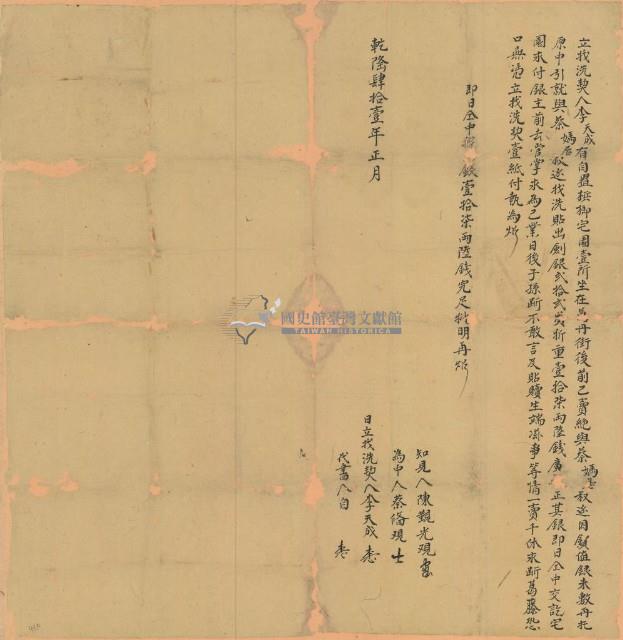 立找洗契人李天成有自置檳榔宅園壹所坐在馬丹街後前已賣絕與蔡媽居叔迄因價值銀未敷再托
原中引就與蔡媽居叔迄找洗貼出劍銀貳拾貳員折重壹拾柒兩陸錢廣正其銀即日仝中交訖宅
園求付銀主前去管掌永為己業日後子孫斷不敢言及貼贖生端滋事等情一賣千休永斷葛藤恐
口無憑立找洗契壹紙付執為炤
即日仝中 銀壹拾柒兩陸錢完足批明再炤
乾隆肆拾壹年正月
知見人陳觀光觀
為中人蔡偹現
日立找洗契人李天成
代書人自
國史館臺灣文獻館
TAIWAN HISTORICA